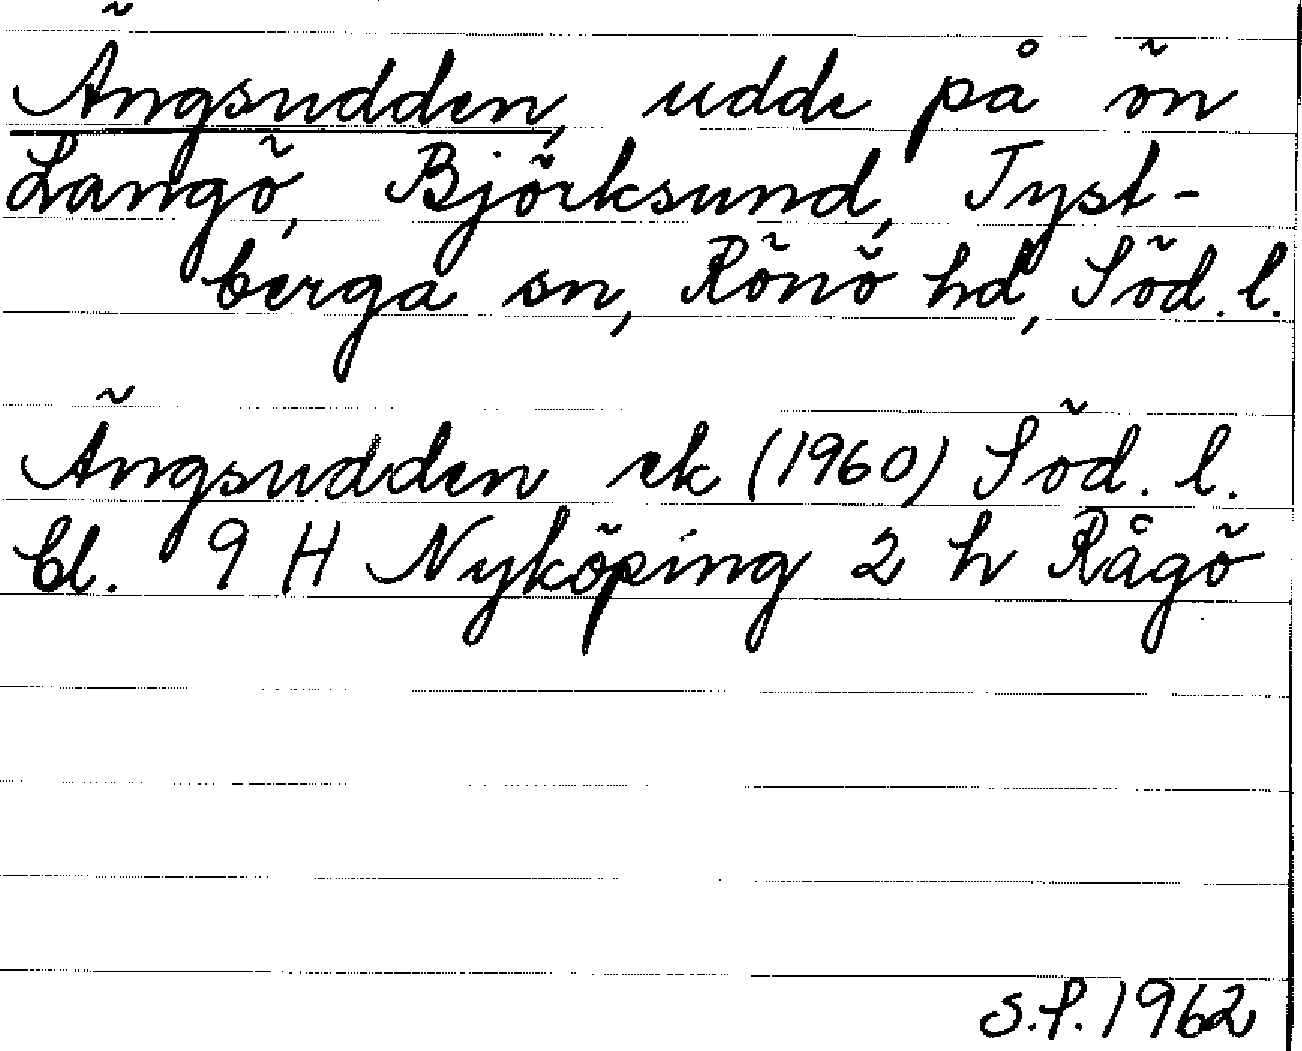 Ängsudden, udde på ön
Langö, Björksund, Tyst-
berga sn, Rönö hd, Söd. l.
Ängsudden ek (1960) Söd. l.
bl. 9 H Nyköping 2 h Rågö
S.P. 1962